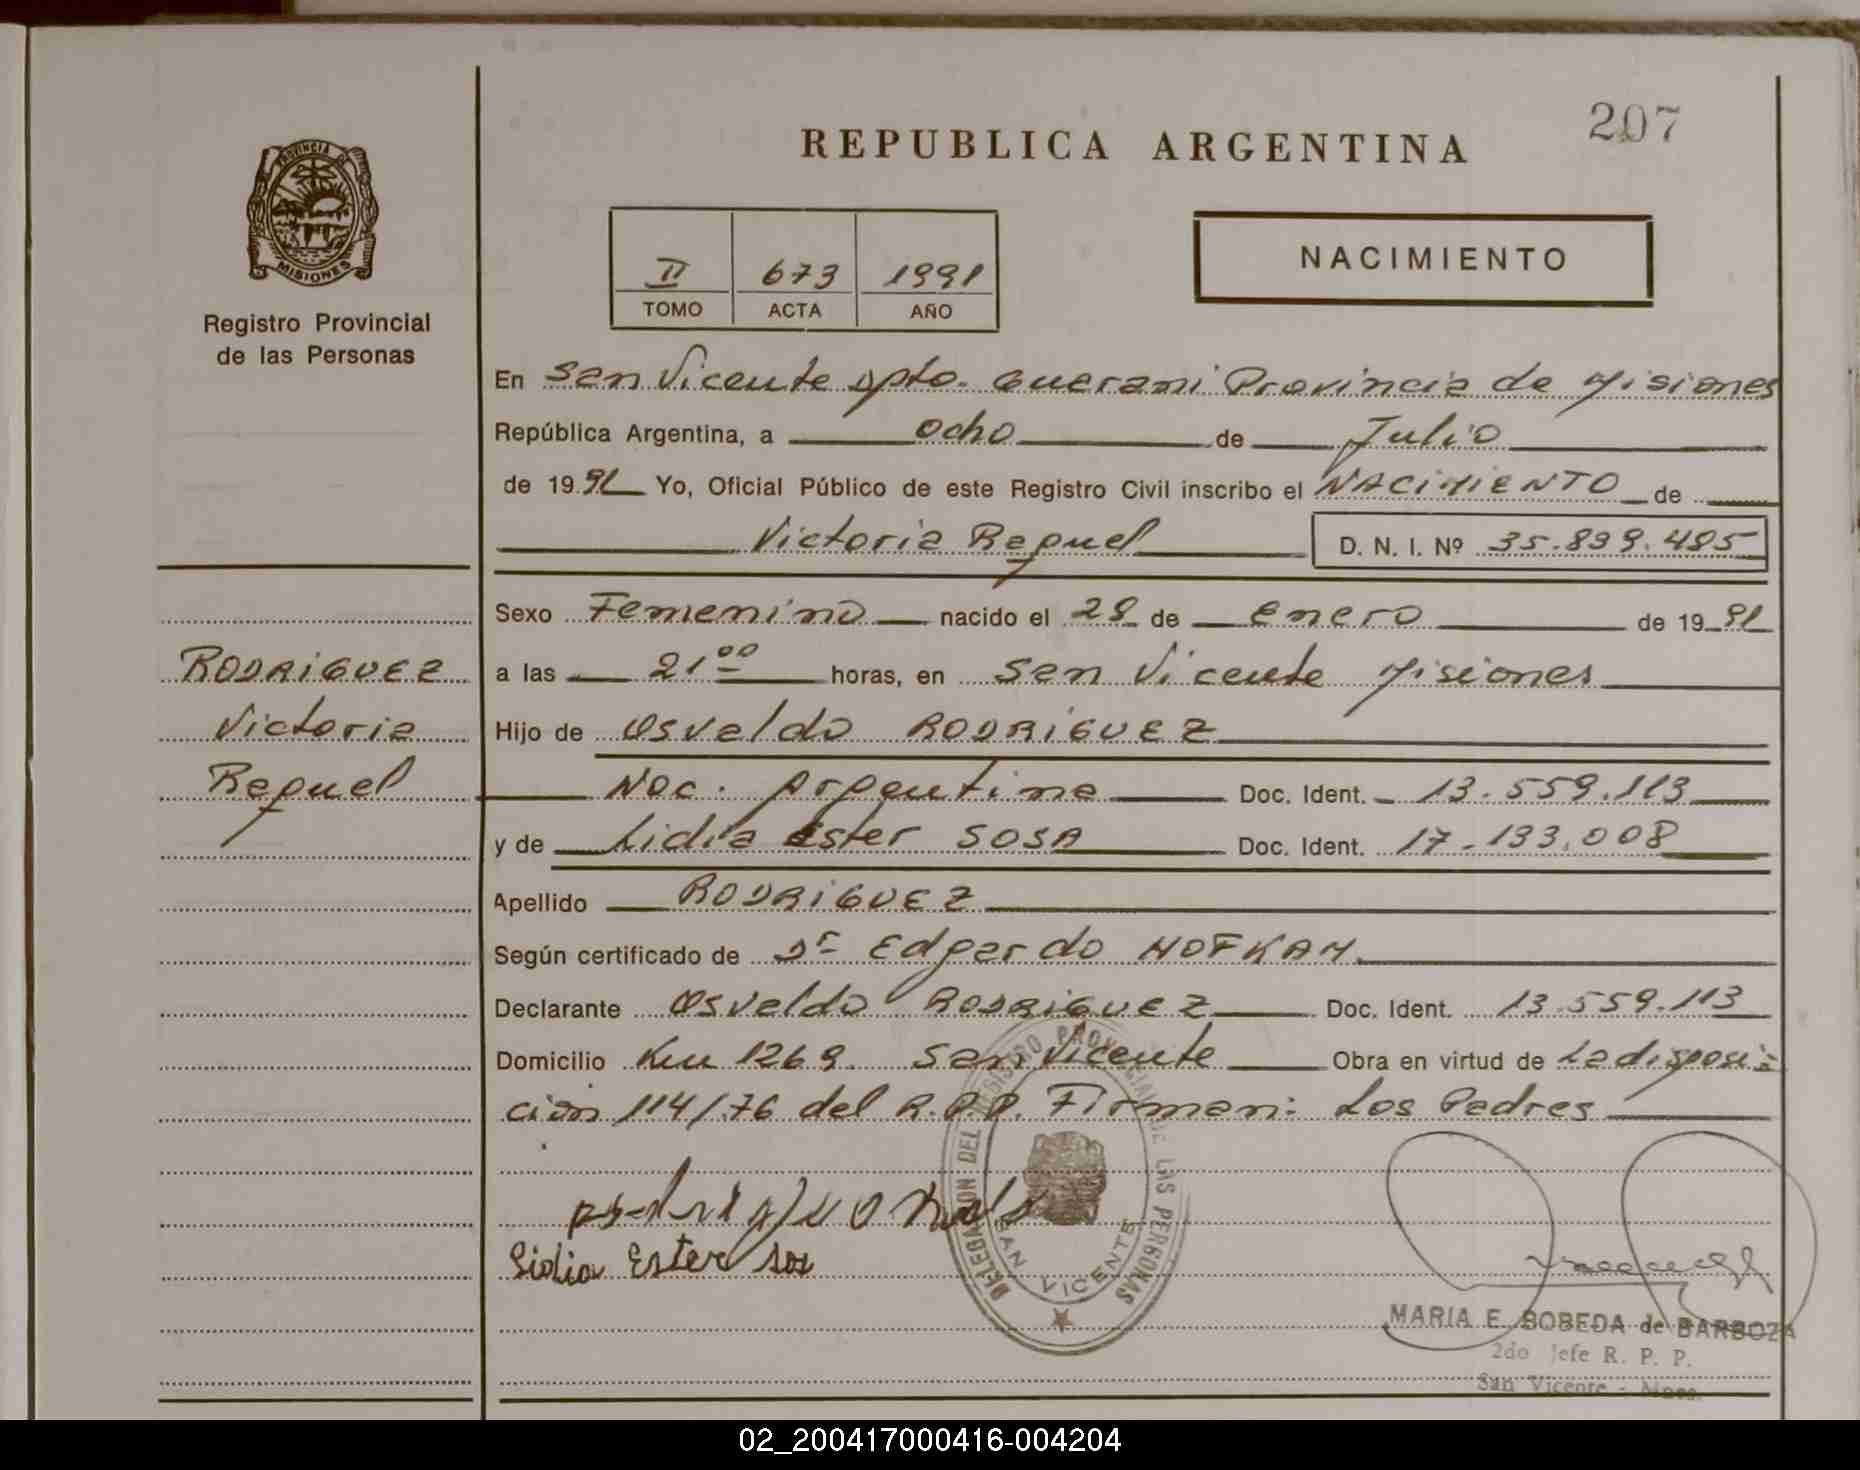 207
REPUBLICA ARGENTINA
PROVINCIA DE
MISIONES
Registro Provincial
de las Personas
II 673 1991
TOMO ACTA AÑO
NACIMIENTO
En San Vicente Dpto. Guarani Provincia de Misiones
República Argentina, a ocho de Julio
de 1991 Yo, Oficial Público de este Registro Civil inscribo el NACIMIENTO de
Victoria Raquel D. N. I. Nº 35.839.485
Sexo Femenino nacido el 28 de Enero de 1991
a las 21 00 horas, en San Vicente Misiones
Hijo de Osvaldo RODRIGUEZ
Nac. Argentina Doc. Ident. 13.559.113
y de Lidia Ester SOSA Doc. Ident. 17.133.008
Apellido RODRIGUEZ
Según certificado de Dr Edgardo HOFKAM
Declarante Osvaldo RODRIGUEZ Doc. Ident. 13.559.113
Domicilio Km 1269. San Vicente Obra en virtud de La disposi=
cion 114/76 del R.P.P. Firman: Los Padres
RODRIGUEZ
Victoria
Raquel
Lidia Ester
DELEGACION DEL REGISTRO PROVINCIAL DE LAS PERSONAS
SAN VICENTE
MARIA E. BOBEDA de BARBOZA
2do Jefe R. P. P.
San Vicente - Mnes.
02_200417000416-004204